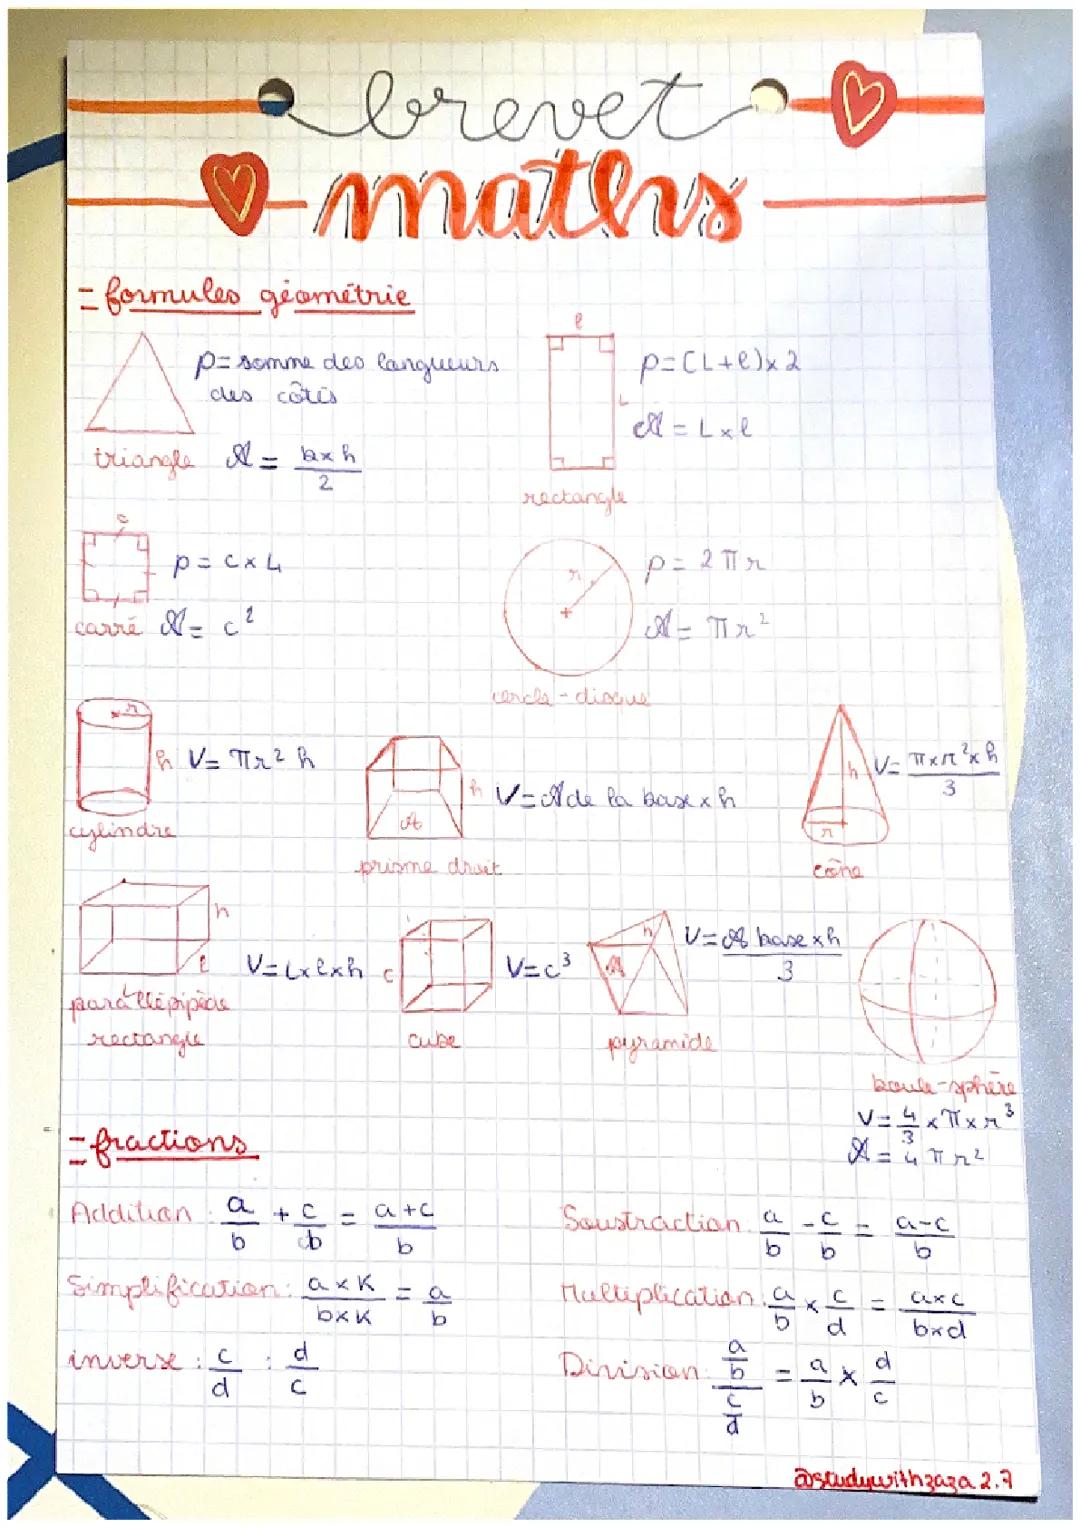 brevet
maths
= formules géométrie
p = somme des longueurs
des côtés
triangle A = b×h/2
l
p = (L+l)×2
L
A = L×l
rectangle
c
p = c×4
carré A = c²
r
p = 2πr
A = πr²
cercle-disque
r
h V = πr² h
cylindre
h V = A de la base×h
A
prisme droit
h V = π×r²×h/3
r
cône
h
l V = L×l×h
parallépipède
rectangle
c V = c³
cube
h V = A base×h/3
A
pyramide
boule-sphère
V = 4/3 ×π×r³
A = 4πr²
= fractions
Addition : a/b + c/b = a+c/b
Soustraction : a/b - c/b = a-c/b
Simplification : a×K/b×K = a/b
Multiplication : a/b × c/d = a×c/b×d
inverse : c/d : d/c
Division : a/b / c/d = a/b × d/c
@studywithzaza2.7